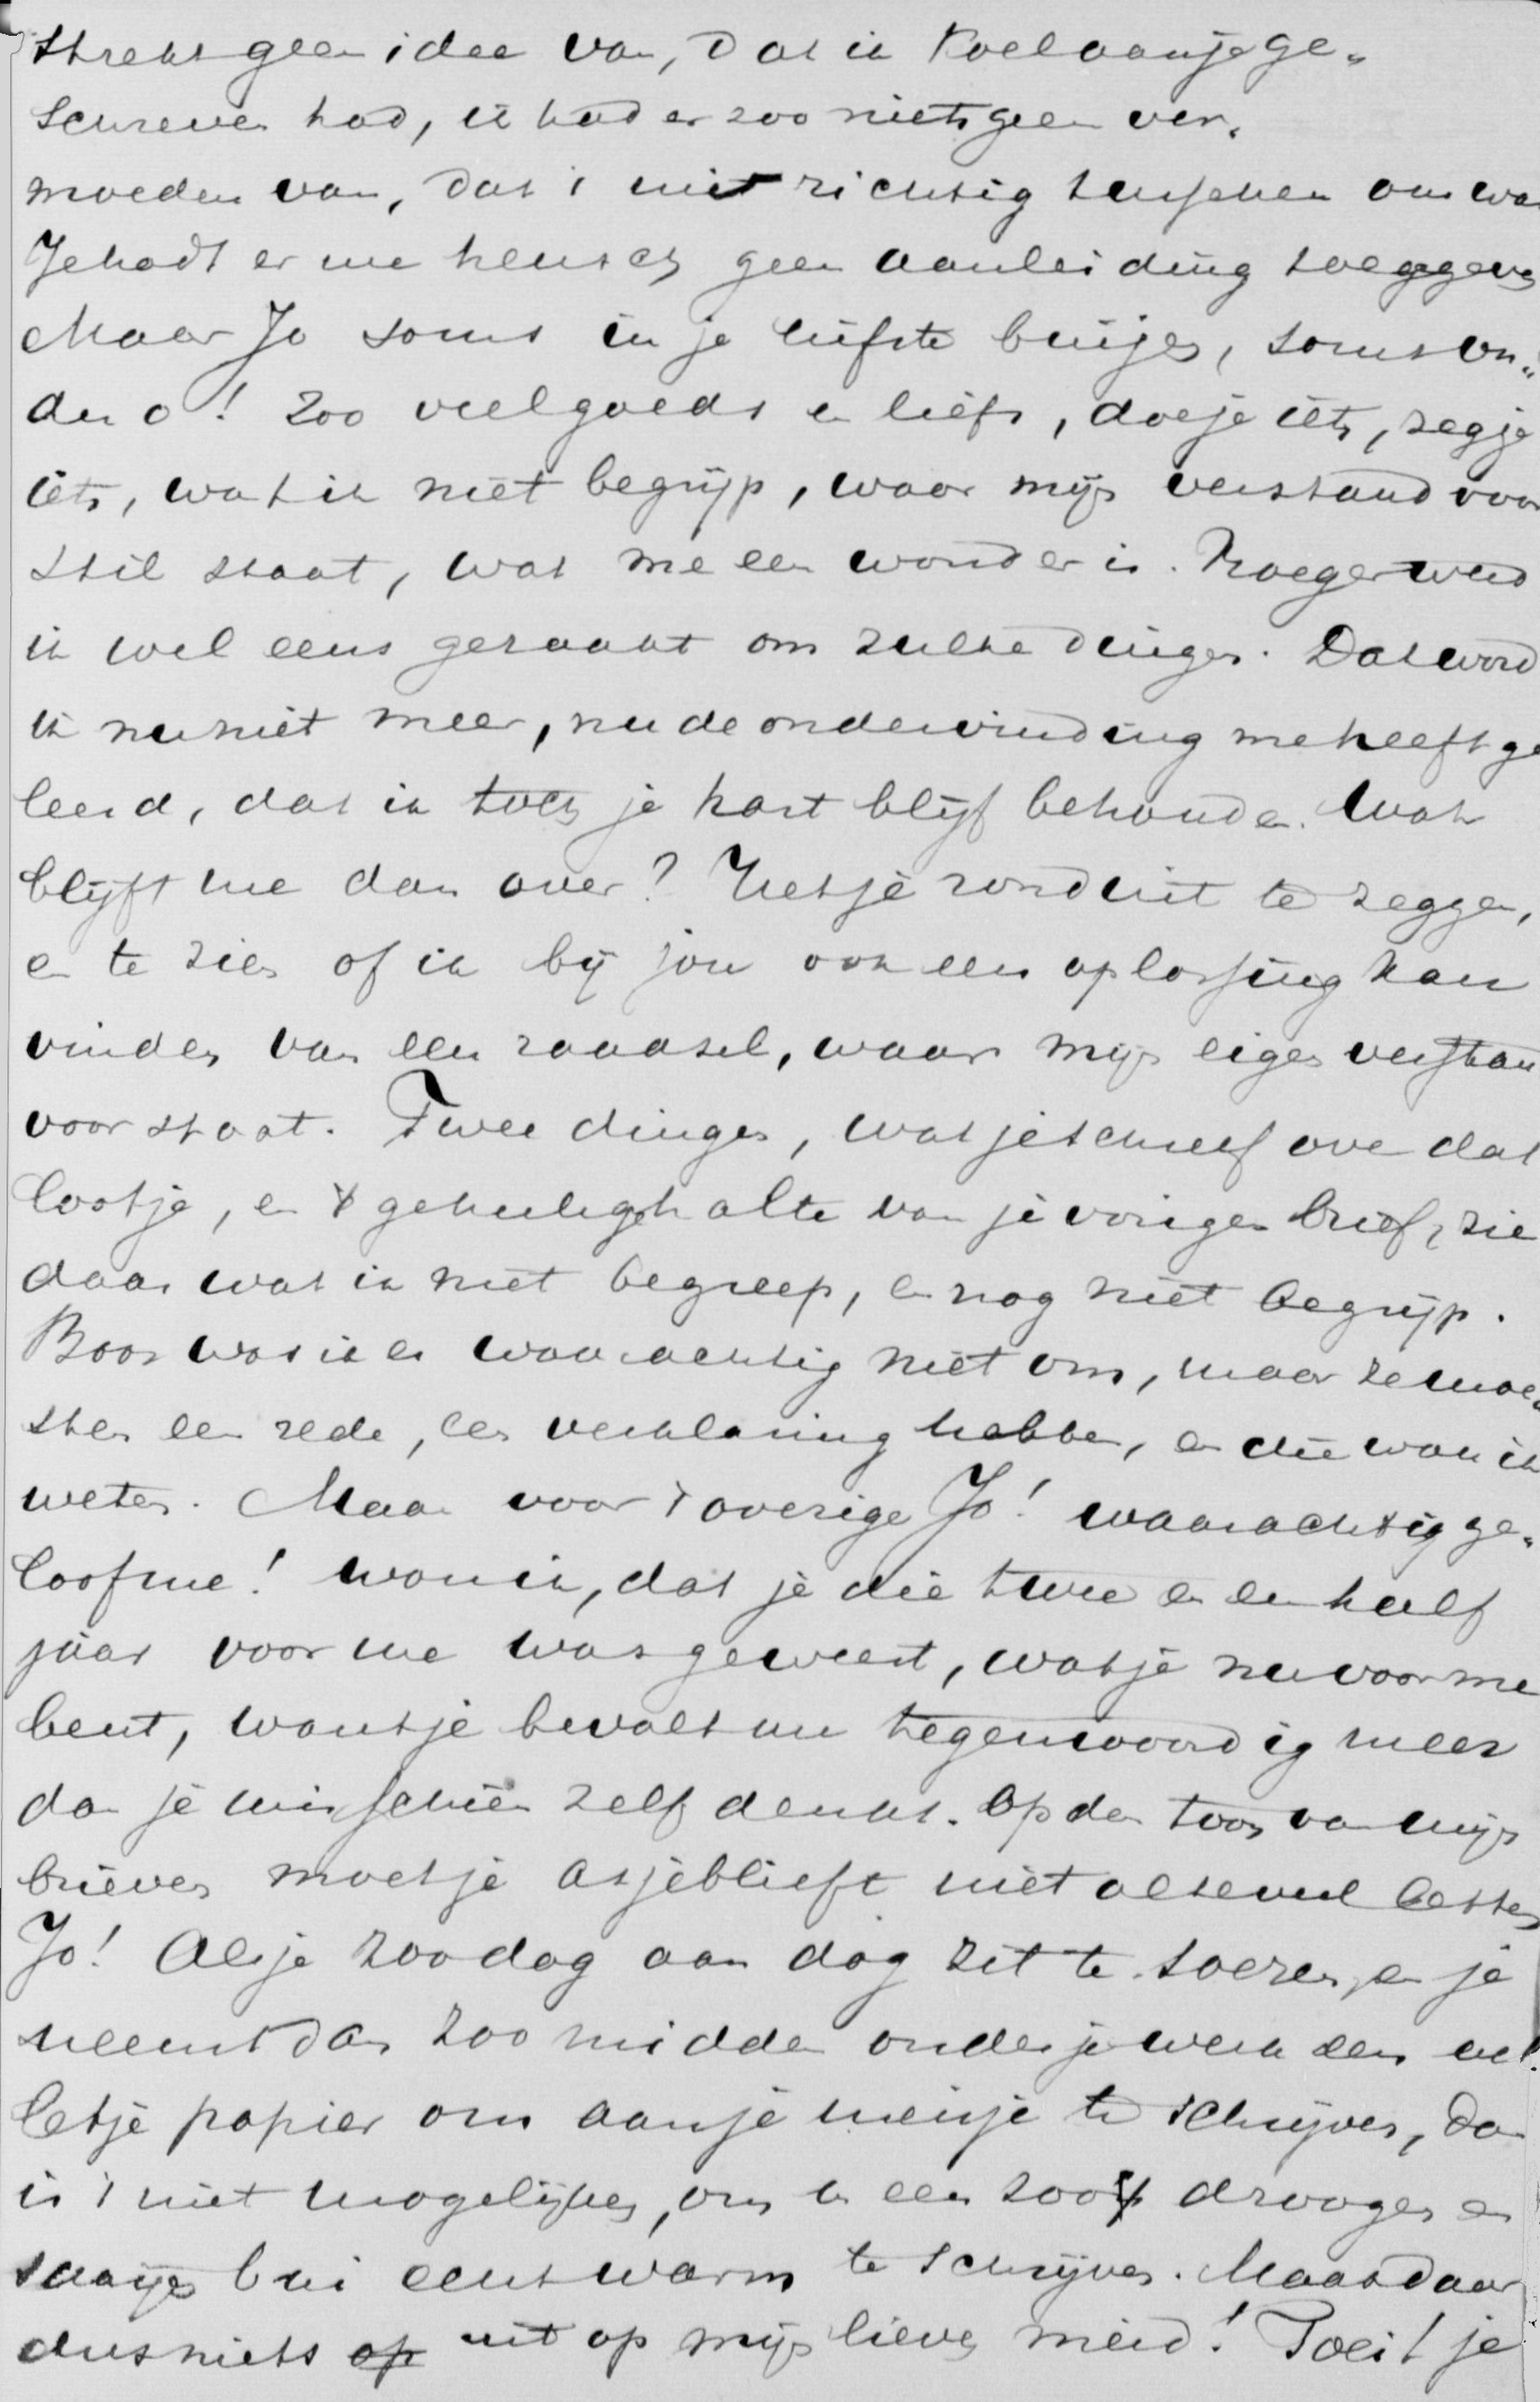 strekt geen idee van, dat ik koel aan je ge„
schreven had, ik had er zoo niets geen ver„
moeden van, dat 't niet richtig tusschen ons was
Je hadt er me heusch geen aanleiding toe gegeven
Maar Jo soms in je liefste buijen, soms on„
der o! zoo veel goeds en liefs, doe je iets, zeg je
iets, wat ik niet begrijp, waar mijn verstand voor
stil staat, wat me een wonder is. Vroeger werd
ik wel eens geraakt om zulke dingen. Dat word
ik nu niet meer, nu de ondervinding me heeft ge
leerd, dat ik toch je hart blijf behouden. Wat
blijft me dan over? Het je ronduit te zeggen,
en te zien of ik bij jou ook een oplossing kan
vinden van een raadsel, waar mijn eigen verstan
voor staat. Twee dingen, wat je schreef over dat
lootje, en 't gehalte van je vorigen brief, zie
daar wat ik niet begreep, en nog niet begrijp.
Boos was ik er waarachtig niet om, maar ze moe„
sten een rede, een verklaring hebben, en die wou ik
weten. Maar voor 't overige Jo! waarachtig ge„
loof me! wou ik, dat je die twee en een half
jaar voor me was geweest, wat je nu voor me
bent, want je bevalt me tegenwoordig meer
dan je misschien zelf denkt. Op den toon van mijn
brieven moet je asjeblieft niet al te veel letten
Jo! Als je zoo dag aan dag zit te en je
neemt dan zoo midden onder je werk een vel„
letje papier om aan je meisje te schrijven, dan
is 't niet mogelijk, om in een zoo droogen en
saaijen bui eens warm te schrijven. Maak daar
dus niets op uit op mijn lieve meid! je